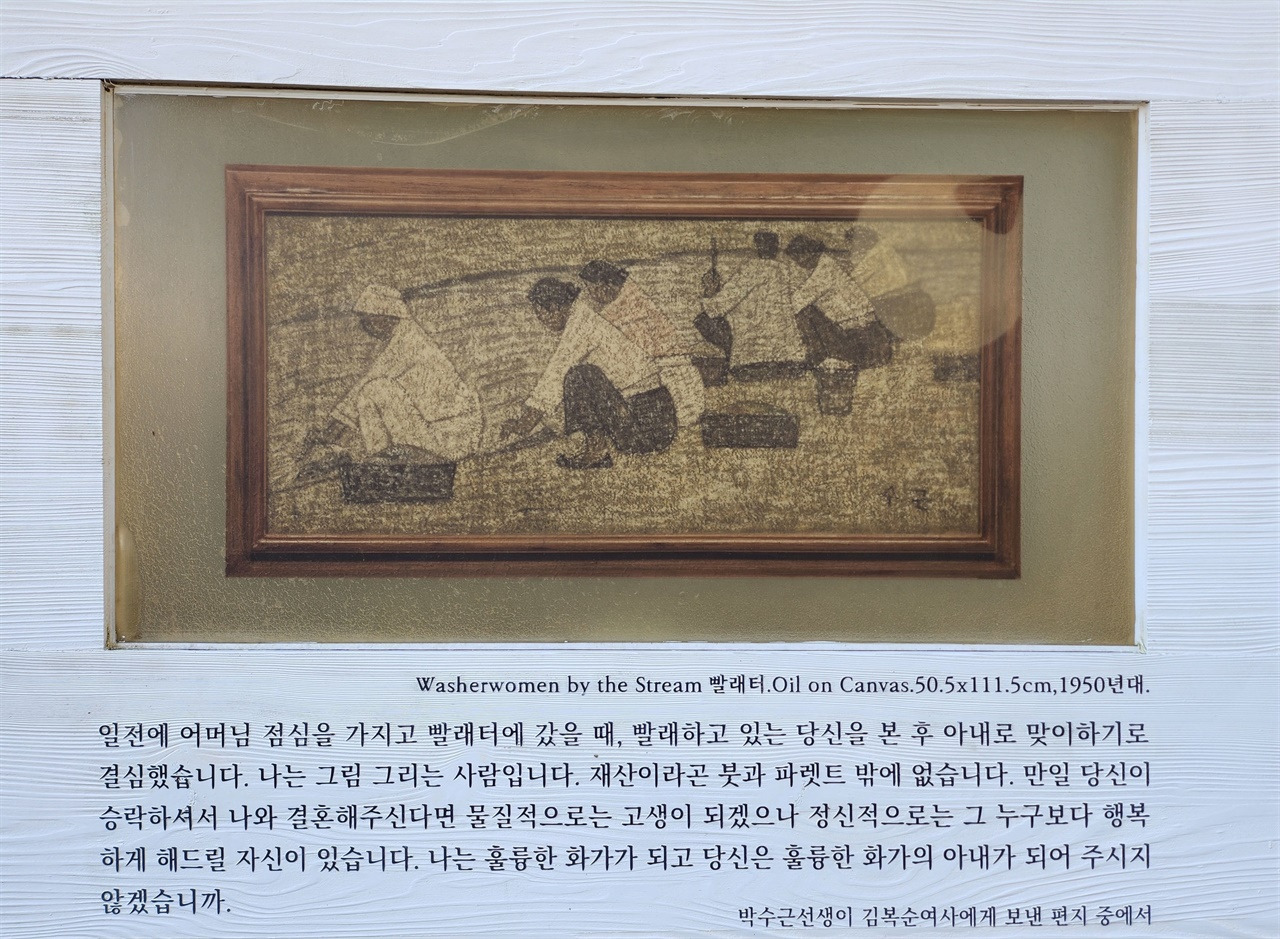 수근
Washerwomen by the Stream 빨래터.Oil on Canvas.50.5x111.5cm,1950년대.
일전에 어머님 점심을 가지고 빨래터에 갔을 때, 빨래하고 있는 당신을 본 후 아내로 맞이하기로
결심했습니다. 나는 그림 그리는 사람입니다. 재산이라곤 붓과 파렛트 밖에 없습니다. 만일 당신이
승락하셔서 나와 결혼해주신다면 물질적으로는 고생이 되겠으나 정신적으로는 그 누구보다 행복
하게 해드릴 자신이 있습니다. 나는 훌륭한 화가가 되고 당신은 훌륭한 화가의 아내가 되어 주시지
않겠습니까.
박수근선생이 김복순여사에게 보낸 편지 중에서